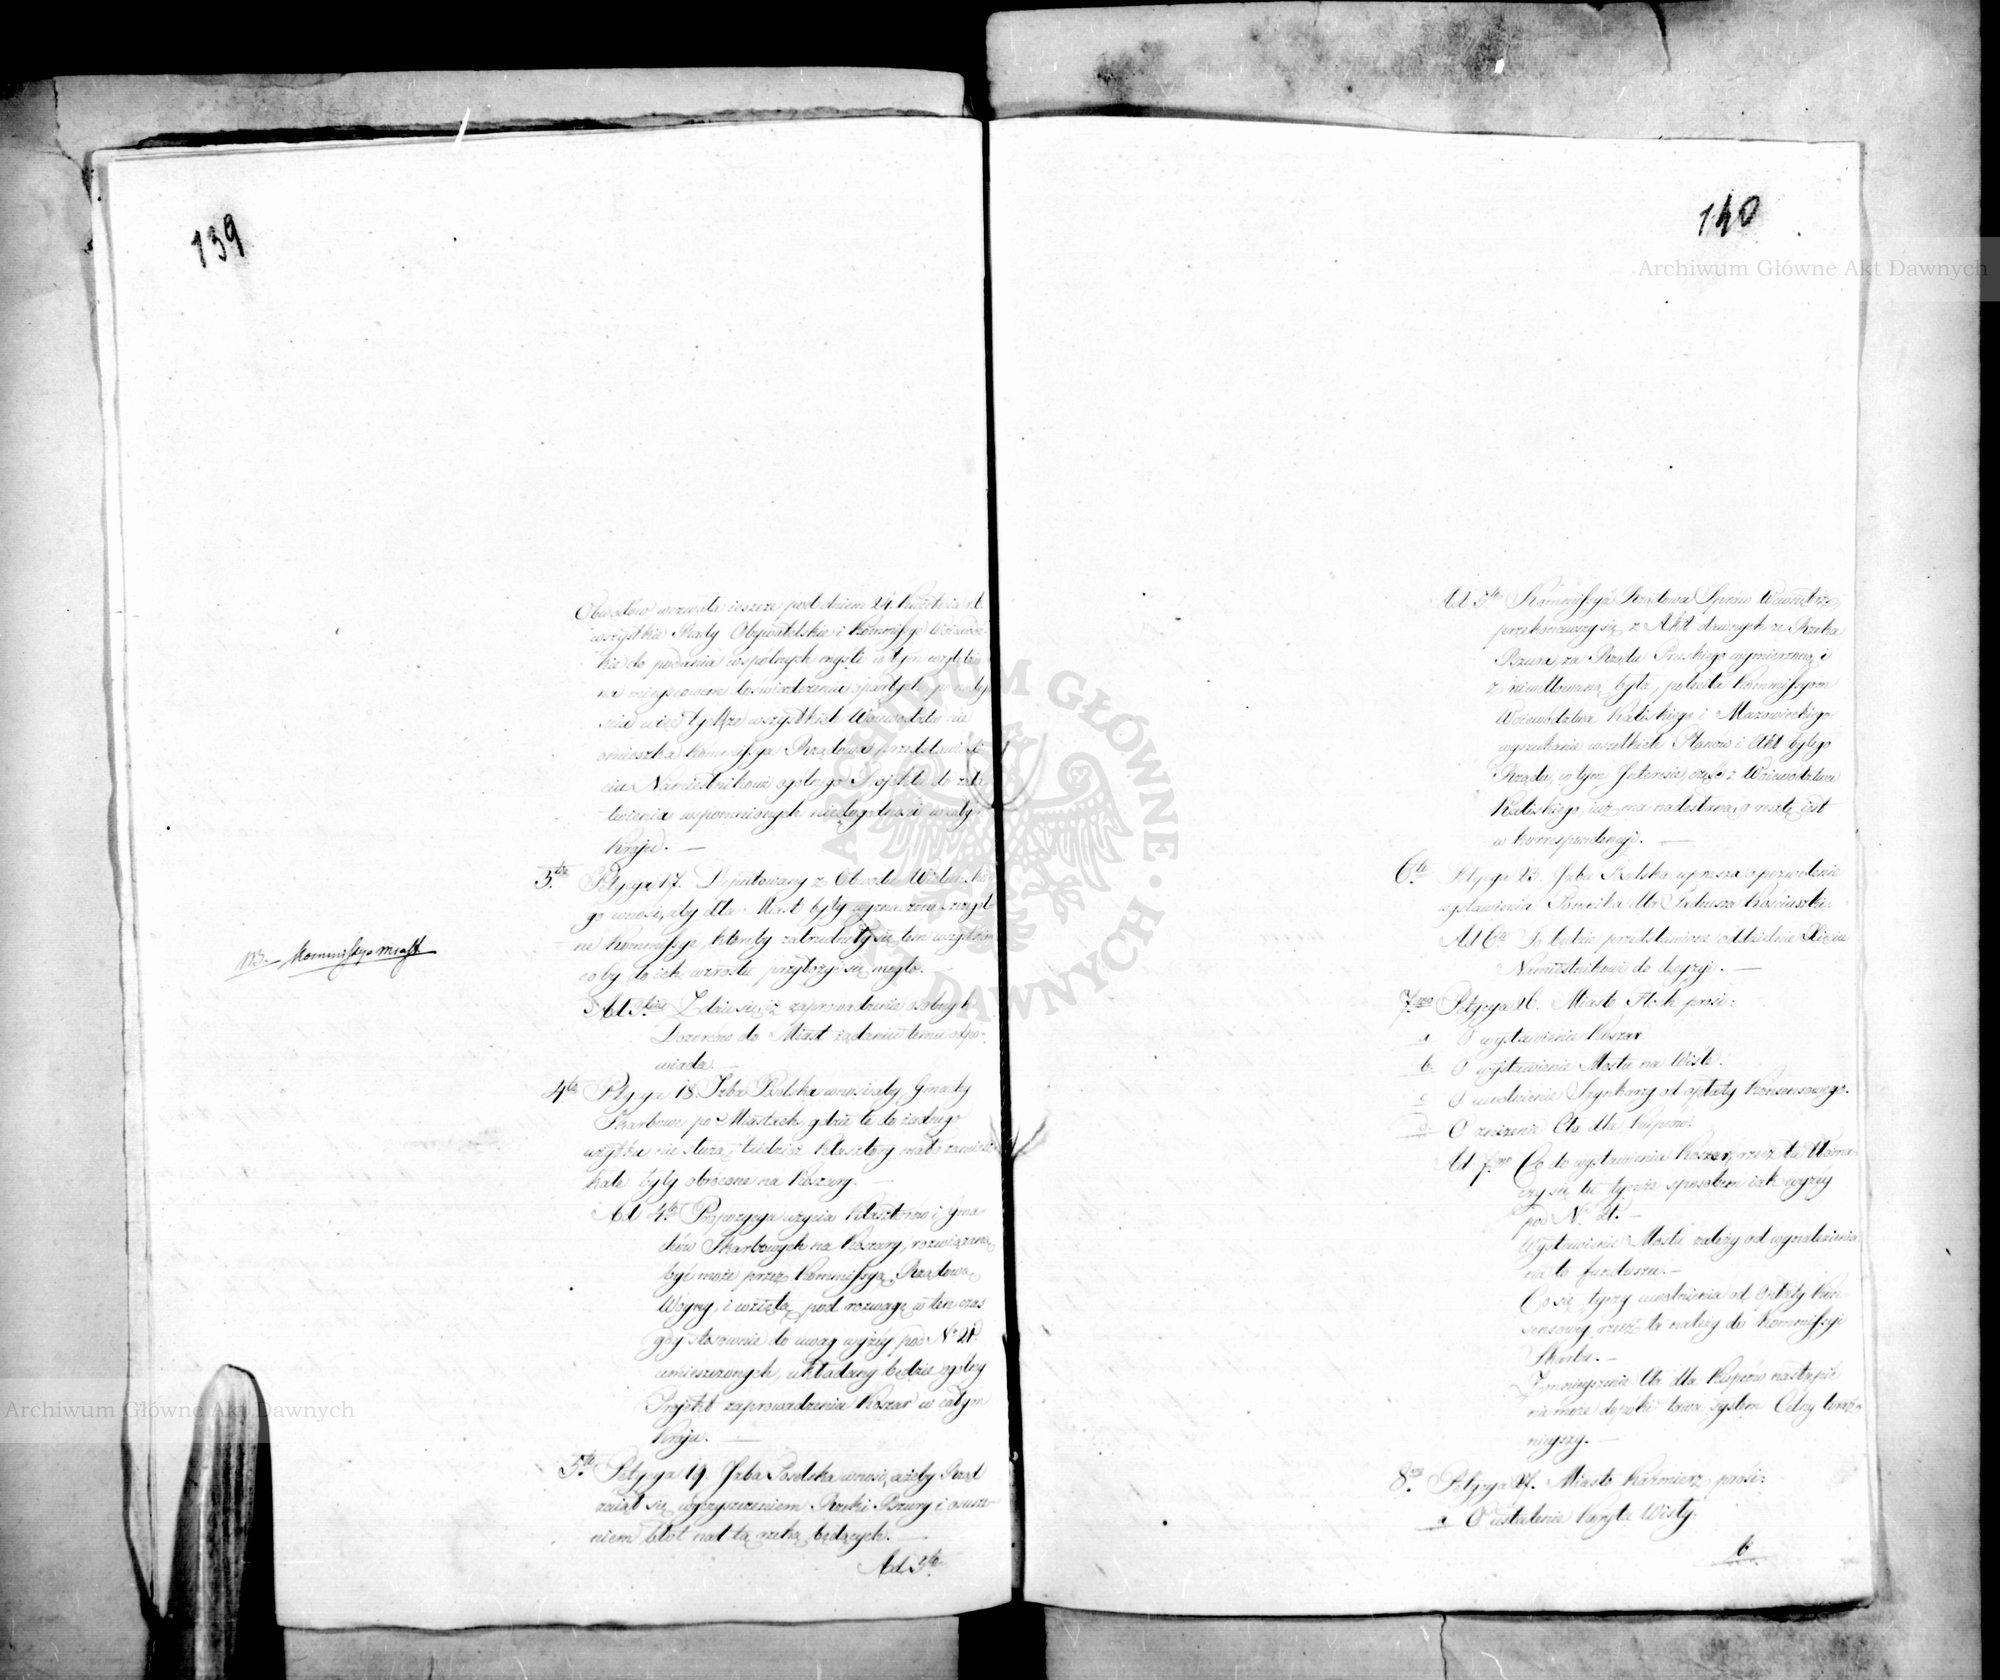 139
Obwodów wezwała ieszcze pod dniem 24. Kwietnia r.b.
wszystkie Rady Obywatelskie i Kommissye Wojewódz-
kie do podania wspólnych myśli w tym względzie
na mieyscowem doświadczeniu opartych, po nadey-
ściu więc tychże wszystkich Województw nie
omieszka Kommissya Rządowa przedstawić
ciu Namiestnikowi ogólnego Projektu do zała-
twienia wspomnionych niedogodności w całym
Kraju. —
3tio Petycya 17. Deputowany z Obwodu
go wnosi, aby dla Miast były wyznaczone szczegól-
ne Kommissye, któreby zatrudniały się tem wszystkiem
coby do ich wzrostu przyłożyć się mogło.
NB. Kommissye miast
Ad 3tium Zdaie się, iż zaprowadzenie osobnych
Dozorców do Miast żądaniu temu odpo-
wiada. —
4to Petycya 18. Izba Poselska wnosi aby Gmachy
Skarbowe po Miastach, gdzie te do żadnego
użytku nie służą, tudzież Klasztory mało zamiesz-
kałe były obrócone na Koszary. —
Ad 4to Propozycya użycia Klasztorów i Gma-
chów Skarbowych na Koszary, rozwiązaną
być może przez Kommissyą Rządową
Woyny, i wziętą pod rozwagę w ten czas
gdy stosownie do uwag wyżey pod No 21.
umieszczonych, układany będzie ogólny
Projekt zaprowadzenia Koszar w całym
Kraju. —
5to Petycya 19. Izba Poselska wnosi, ażeby Rząd
zaiął się wyczyszczeniem Rzeki Bzury i osusze-
niem błot nad tą rzeką będących. —
Ad 5to
140
Ad 5to Kommissya Rządowa Spraw Wewnętrz:
przekonawszy się z Akt dawnych że Rzeka
Bzura, za Rządu Pruskiego wymierzoną i
zniwellowaną była, poleciła Kommissyom
Województwa Kaliskiego i Mazowieckiego
wyszukanie wszelkich Planów i Akt byłego
Rządu, w tym Interesie, część z Województwa
Kaliskiego, już ma nadesłaną, o resztę jest
w korrespondencyi. —
6to Petycya 23. Izba Poselska uprasza o pozwolenie
wystawienia Pomnika dla Tadeusza Kościuszki.
Ad 6to To będzie przedstawione oddzielnie Xięciu
Namiestnikowi do decyzyi. —
7mo Petycya 26. Miasto Płock prosi:
a O wystawienie Koszar
b. O wystawienie Mostu na Wiśle.
c O uwolnienie Szynkarzy od opłaty Konsensowego.
d. O zniżenie Cła dla Kupców.
Ad 7mo Co do wystawienia Koszar, rzecz ta tłoma-
czy się tu tymże sposobem iak wyżey
pod No 21. —
Wystawienie Mostu zależy od wynalezienia
na to funduszu. —
Co się tyczy uwolnienia od Opłaty Kon-
sensowey, rzecz ta należy do Kommissyi
Skarbu. —
Zmnieyszenie Cła dla Kupców nastąpić
nie może dopóki trwa System Celny teraź-
nieyszy. —
8vo Petycya 27. Miasto Kazimierz prosi:
a O ustalenie Koryta Wisły.
b
Archiwum Główne Akt Dawnych
Archiwum Główne Akt Dawnych
ARCHIWUM GŁÓWNE AKT DAWNYCH